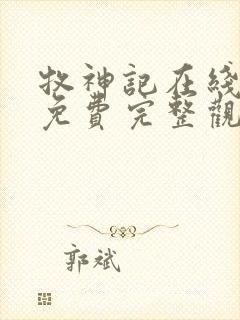 牧神記在綫
免費完整觀
郭斌